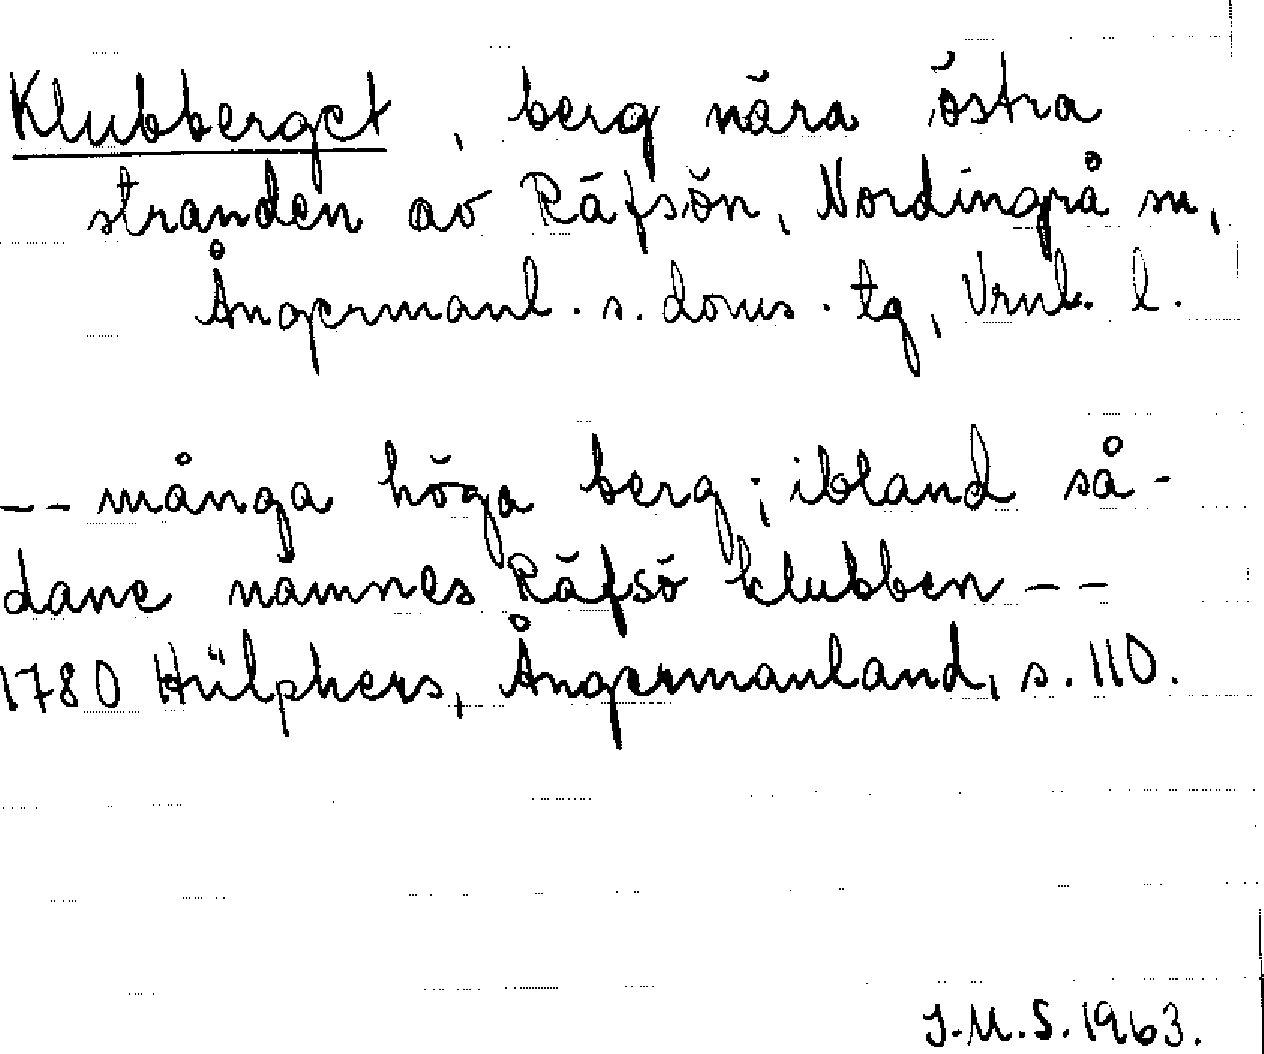 Klubberget, berg nära östra
stranden av Räfsön, Nordingrå sn,
Ångermanl. s. doms. tg, Vrnl. l.
-- många höga berg; ibland så-
dane nämnes Räfsö klubben --
1780 Hülphers, Ångermanland, s. 110.
J.M.S. 1963.